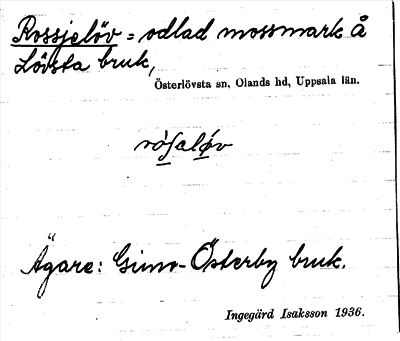 Rossjelöv = odlad mossmark å
Lövsta bruk,
Österlövsta sn, Olands hd, Uppsala län.
Ägare: Gimo-Österby bruk.
Ingegärd Isaksson 1936.